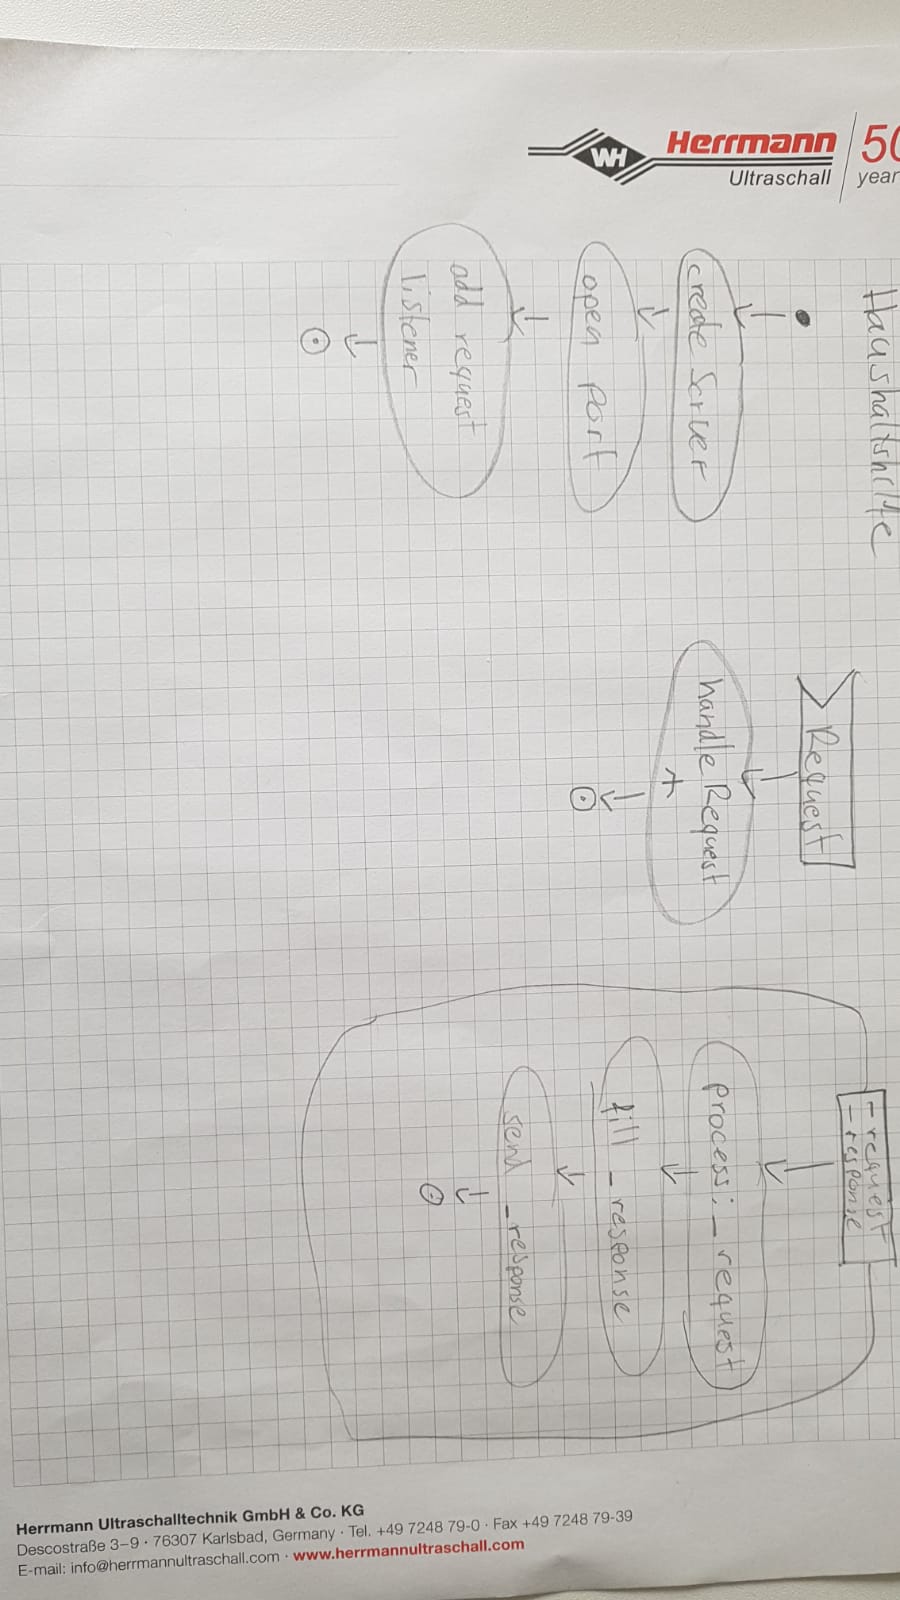 Haushaltshilfe
create Server
open port
add request
listener
Request
handle Request
+
- request
- response
process: _ request
fill _ response
send _ response
50
year
Herrmann
Ultraschall
WH
Herrmann Ultraschalltechnik GmbH & Co. KG
Descostraße 3–9 · 76307 Karlsbad, Germany · Tel. +49 7248 79-0 · Fax +49 7248 79-39
E-mail: info@herrmannultraschall.com · www.herrmannultraschall.com